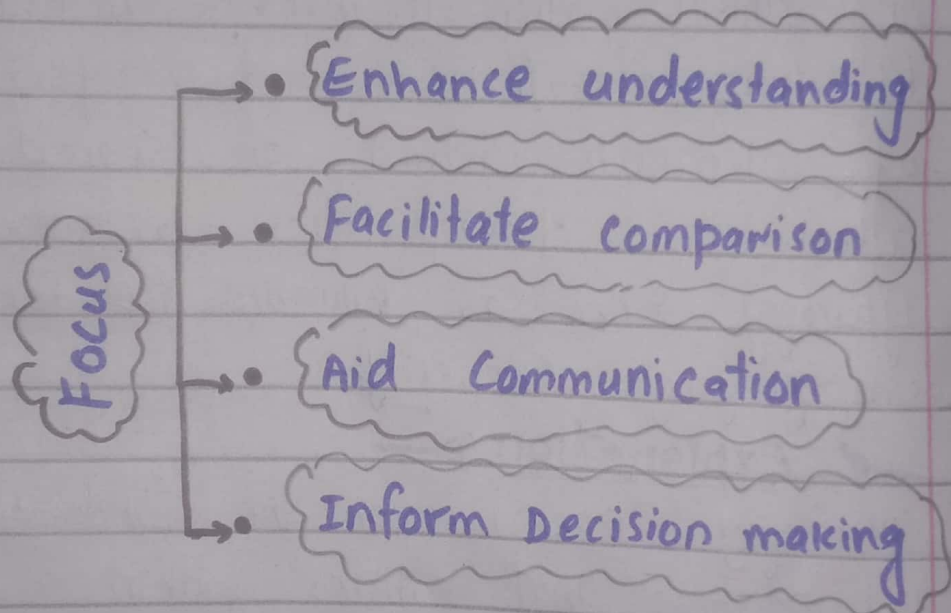 Focus
Enhance understanding
Facilitate comparison
Aid Communication
Inform Decision making